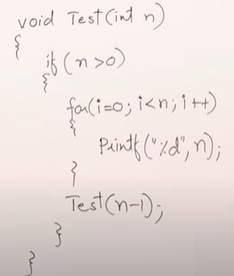 void Test(int n)
{
if(n>0)
{
for(i=0; i<n; i++)
{
Printf("%d", n);
}
Test(n-1);
}
}